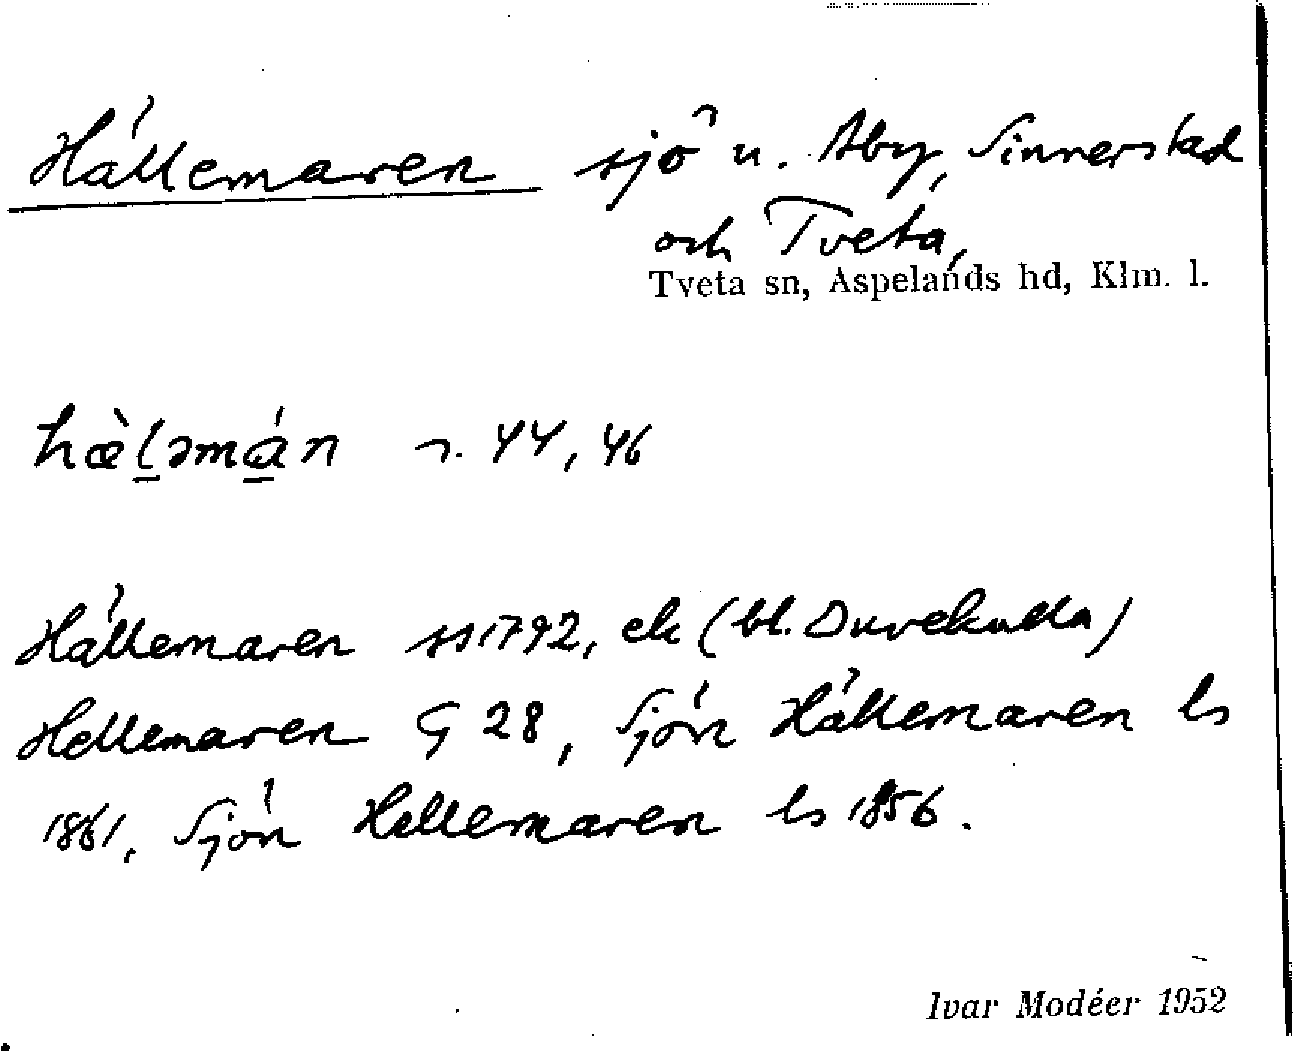 Hällemaren sjö u. Åby, Sinnerstad
och Tveta,
Tveta sn, Aspelands hd, Klm. l.
hæ̀l̠əmá̠n r. 44, 46
Hällemaren ss 1792, ek (bl. Duvekulla)
Hellemaren G 28, Sjön Hällemaren ls
1861, Sjön Hellemaren ls 1856.
Ivar Modéer 1952